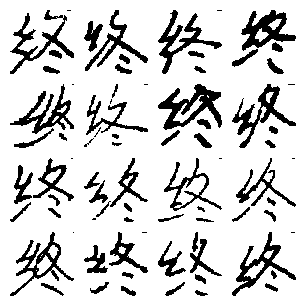 终终终终
终终终终
终终终终
终终终终